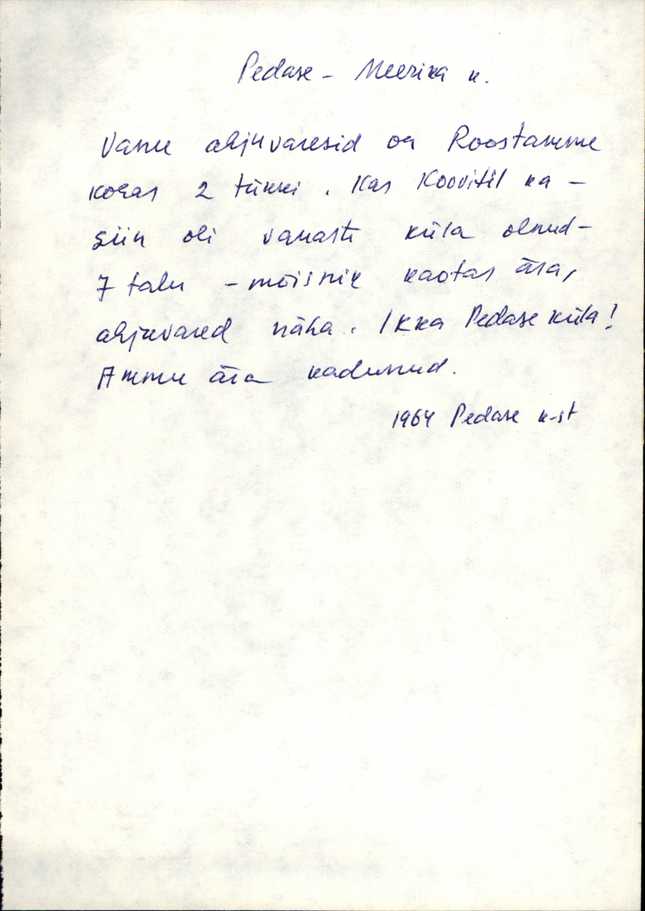 Pedase - Meerika k.
Vanu ahjuvaresid on Roostamme
koras 2 tükki. Kas Koovitil ka -
siin oli vanasti küla olnud -
7 talu - mõisnik kaotas ära,
ahjuvared näha. Ikka Pedase küla!
Ammu ära kadunud.
1964 Pedase k-st